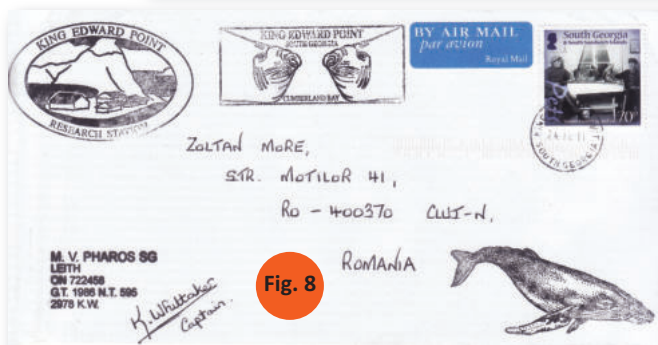 KING EDWARD POINT
RESEARCH STATION
KING EDWARD POINT
SOUTH GEORGIA
CUMBERLAND BAY
BY AIR MAIL
par avion
Royal Mail
South Georgia
& South Sandwich Islands
70p
SOUTH GEORGIA
ZOLTAN MORE,
STR. MOTILOR 41,
RO - 400370 CLUJ-N,
ROMANIA
M. V. PHAROS SG
LEITH
ON 722456
G.T. 1986 N.T. 595
2978 K.W.
K. Whittaker
Captain.
Fig. 8